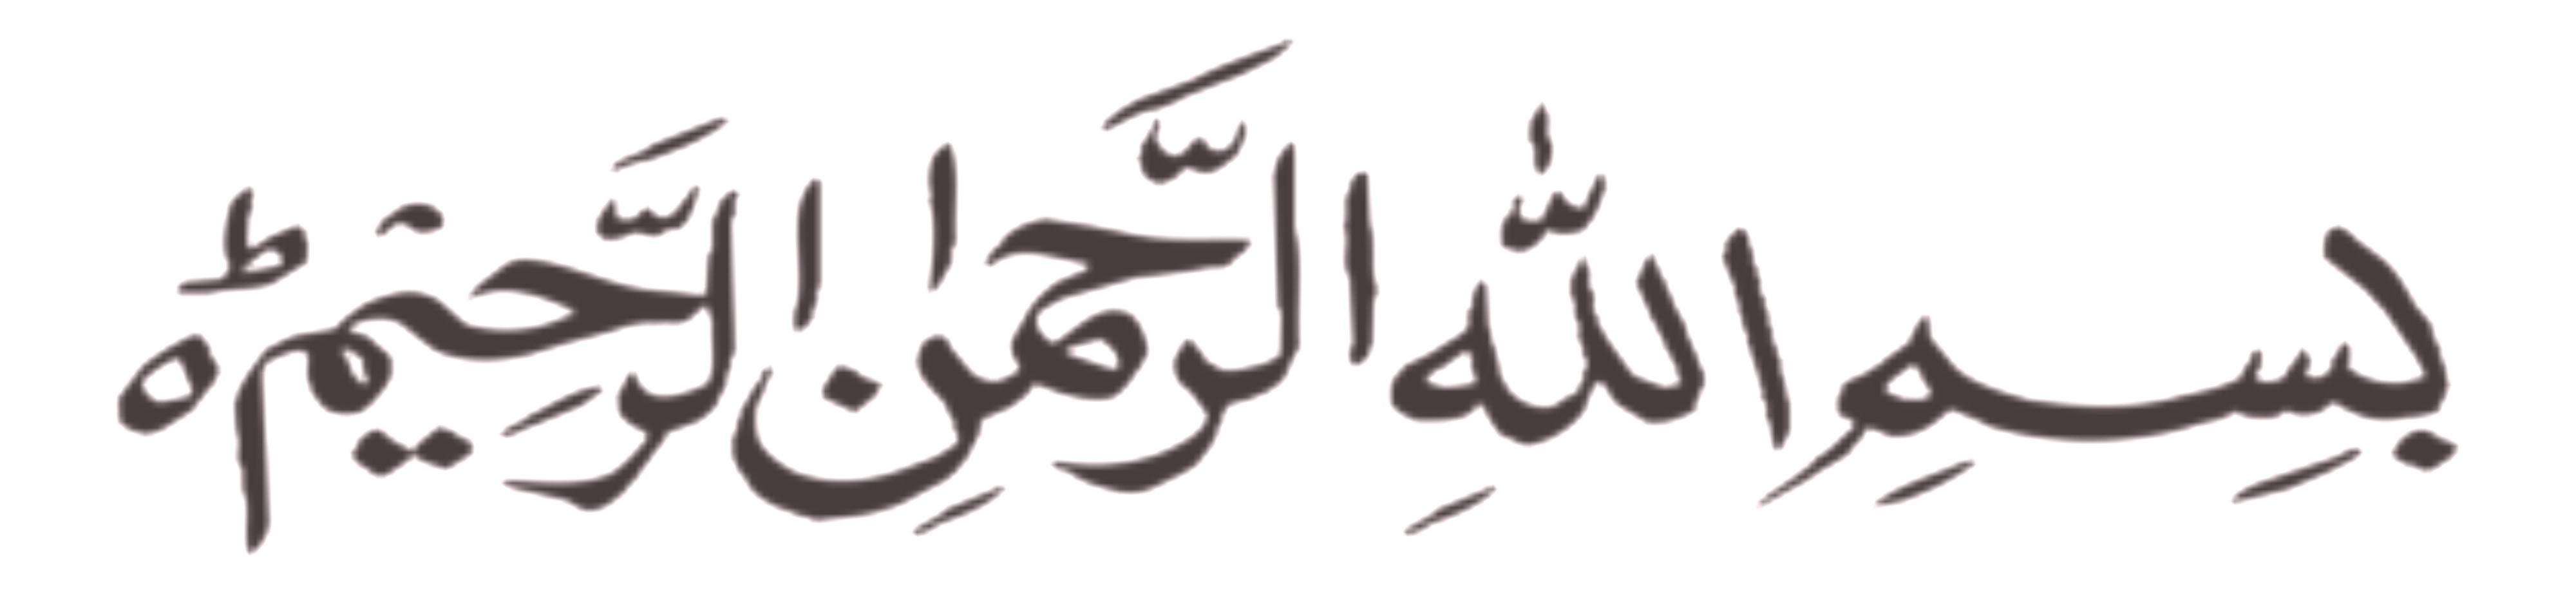 بِسْمِ اللّٰهِ الرَّحْمٰنِ الرَّحِیْمِ ؕ○